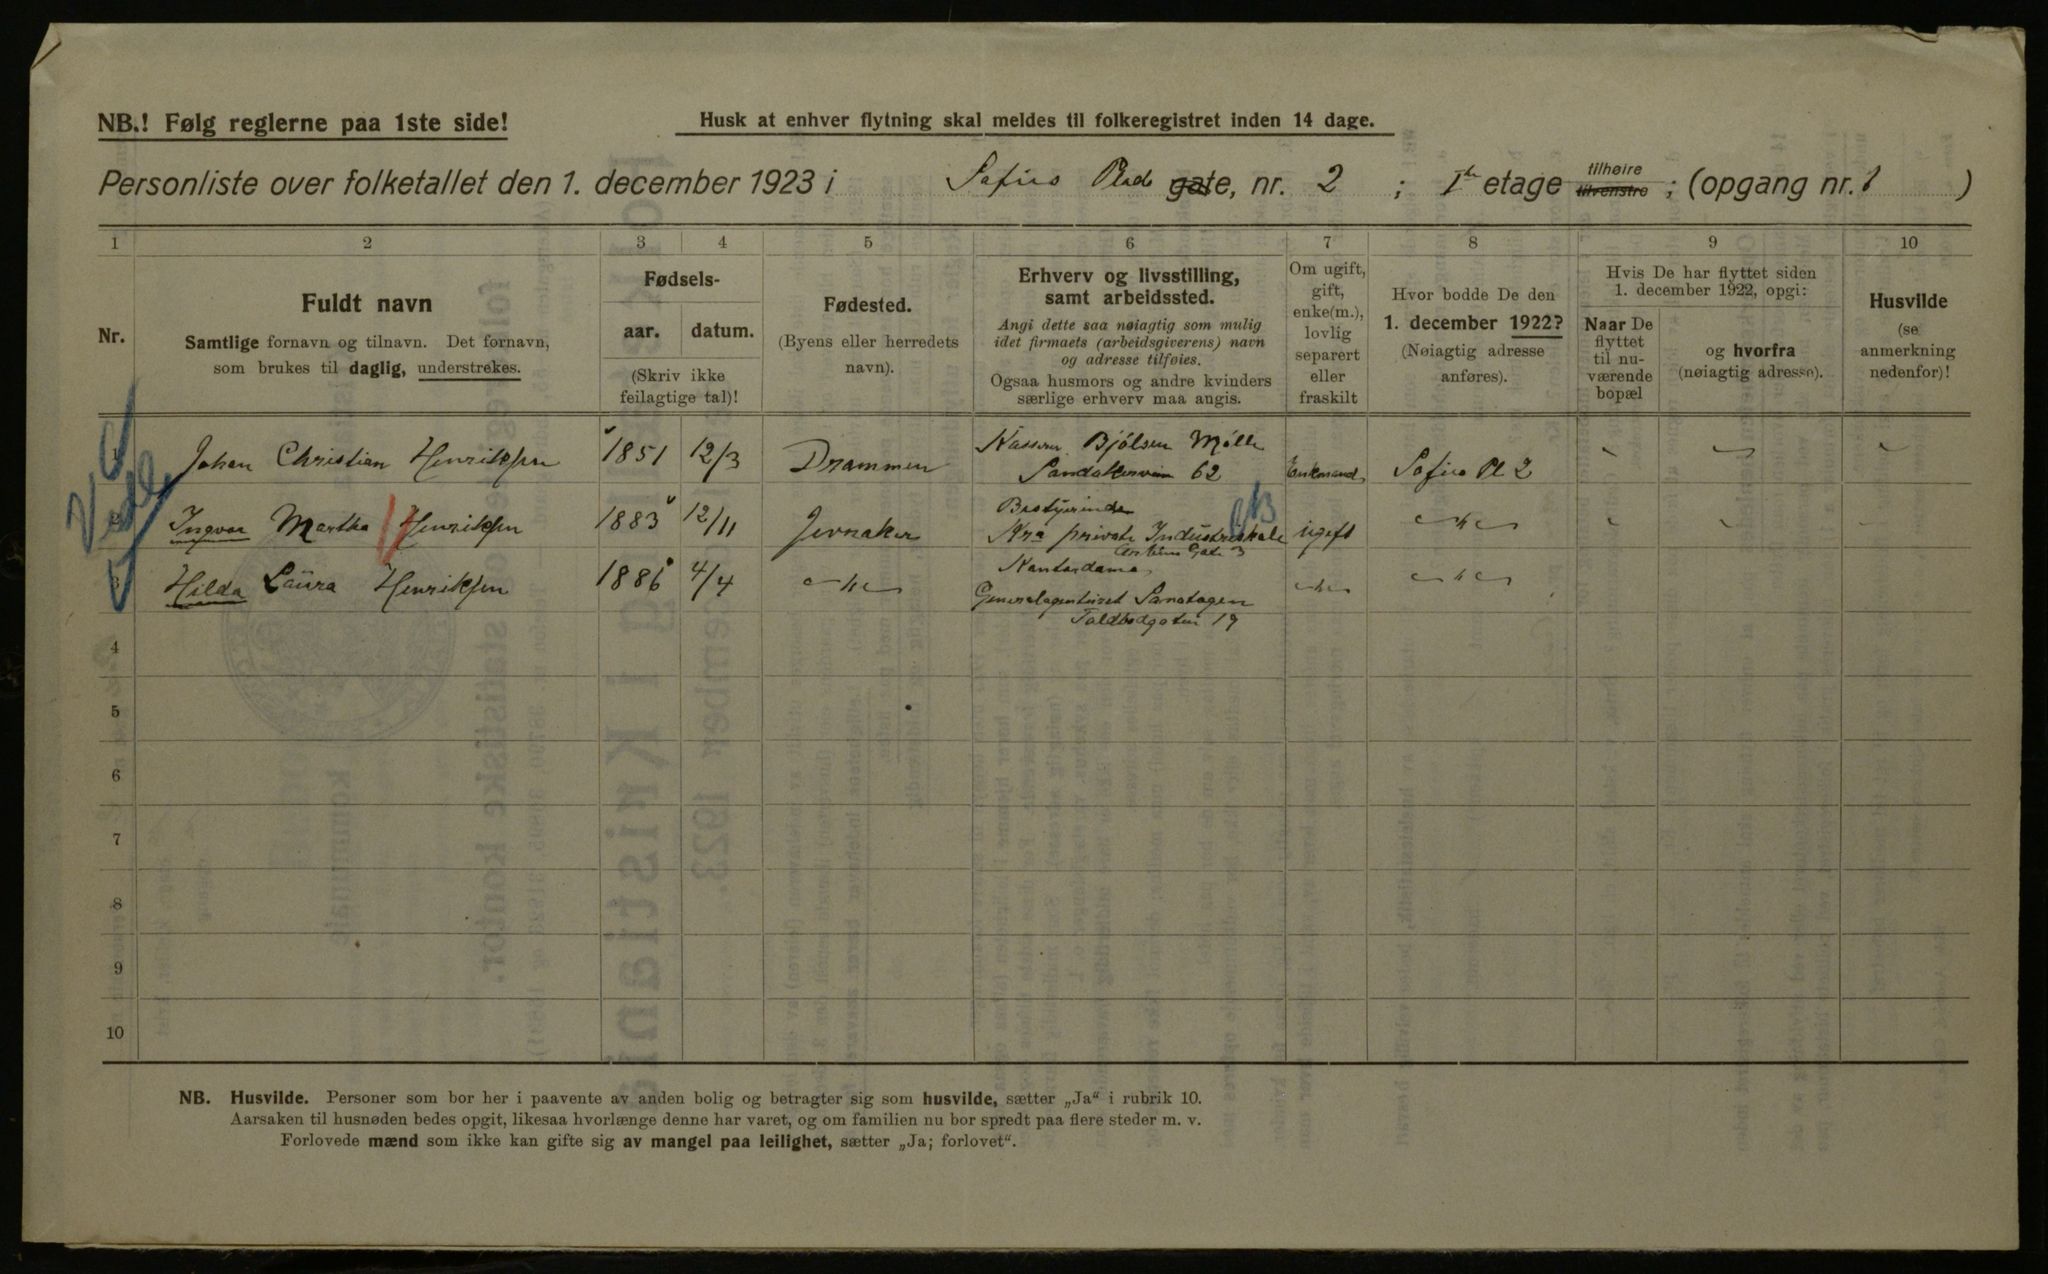 NB.! Følg reglerne paa 1ste side!
Husk at enhver flytning skal meldes til folkeregistret inden 14 dage.
Personliste over folketallet den 1. december 1923 i Sofies Plads gate, nr. 2 ; I etage tilhøire tilvenstre ; (opgang nr. 1 )
1 2 3 4 5 6 7 8 9 10
Nr.
Fuldt navn
Samtlige fornavn og tilnavn. Det fornavn,
som brukes til daglig, understrekes.
Fødsels-
aar. datum.
(Skriv ikke
feilagtige tal)!
Fødested.
(Byens eller herredets
navn).
Erhverv og livsstilling,
samt arbeidssted.
Angi dette saa nøiagtig som mulig
idet firmaets (arbeidsgiverens) navn
og adresse tilføies.
Ogsaa husmors og andre kvinders
særlige erhverv maa angis.
Om ugift,
gift,
enke(m.),
lovlig
separert
eller
fraskilt
Hvor bodde De den
1. december 1922?
(Nøiagtig adresse
anføres).
Hvis De har flyttet siden
1. december 1922, opgi:
Naar De
flyttet
til nu-
værende
bopæl
og hvorfra
(nøiagtig adresse).
Husvilde
(se
anmerkning
nedenfor)!
1 Johan Christian Henriksen 1851 12/3 Drammen Kasserer Bjölsen Mölle
Sandakerveien 62 Enkmand Sofies Pl 2
2 Ingvar Martha Henriksen 1883 12/11 Jevnaker Bestyrerinde
Kra private Industriskole ugift — " —
Gate 3
3 Hilda Laura Henriksen 1886 4/4 — " — Kontordame — " — — " —
Generalagenturet Sanatogen
Toldbodgaten 19
4
5
6
7
8
9
10
NB. Husvilde. Personer som bor her i paavente av anden bolig og betragter sig som husvilde, sætter „Ja“ i rubrik 10.
Aarsaken til husnøden bedes opgit, likesaa hvorlænge denne har varet, og om familien nu bor spredt paa flere steder m. v.
Forlovede mænd som ikke kan gifte sig av mangel paa leilighet, sætter „Ja; forlovet“.